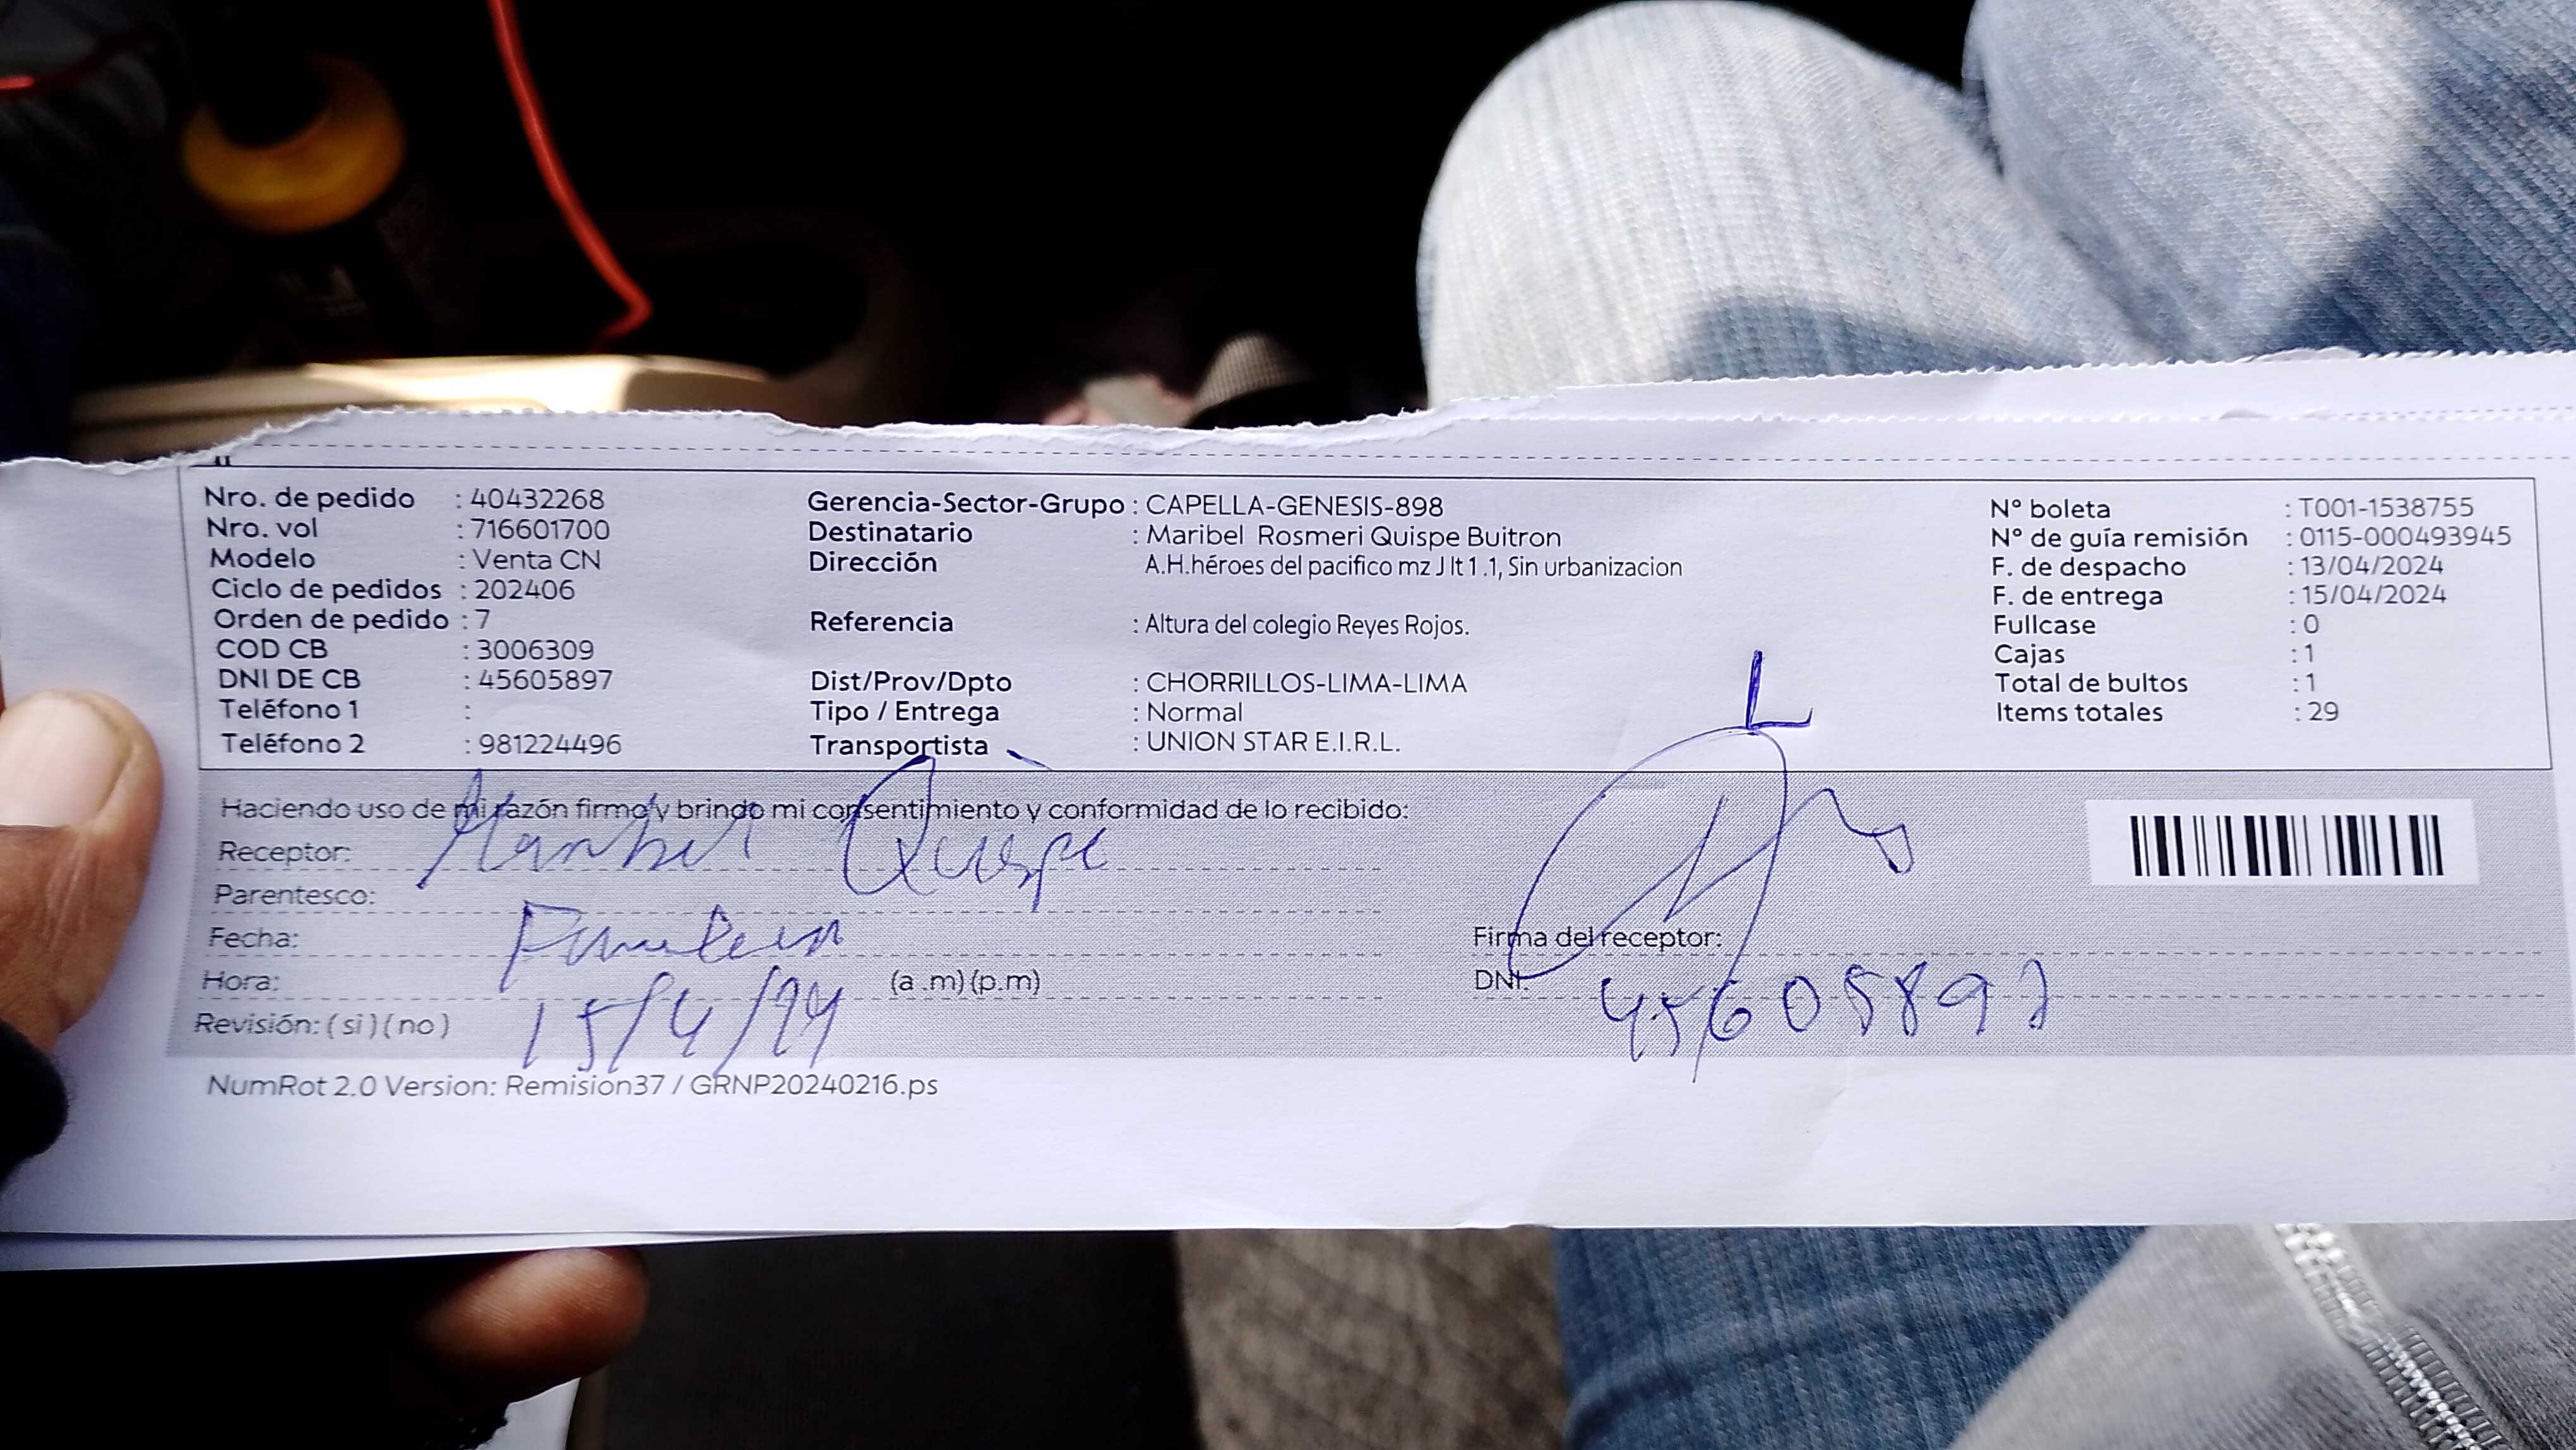 Nro. de pedido : 40432268
Nro. vol : 716601700
Modelo : Venta CN
Ciclo de pedidos : 202406
Orden de pedido : 7
COD CB : 3006309
DNI DE CB : 45605897
Teléfono 1 :
Teléfono 2 : 981224496
Gerencia-Sector-Grupo : CAPELLA-GENESIS-898
Destinatario : Maribel Rosmeri Quispe Buitron
Dirección A.H.héroes del pacifico mz J lt 1 .1, Sin urbanizacion
Referencia : Altura del colegio Reyes Rojos.
Dist/Prov/Dpto : CHORRILLOS-LIMA-LIMA
Tipo / Entrega : Normal
Transportista : UNION STAR E.I.R.L.
N° boleta : T001-1538755
N° de guía remisión : 0115-000493945
F. de despacho : 13/04/2024
F. de entrega : 15/04/2024
Fullcase : 0
Cajas : 1
Total de bultos : 1
Items totales : 29
L
Haciendo uso de mi razón firmo y brindo mi consentimiento y conformidad de lo recibido:
Receptor: Maribel Quispe
Parentesco:
Fecha:
Hora: (a .m) (p.m)
15/4/24
Revisión: ( si ) ( no )
Firma del receptor:
DNI: 45605897
NumRot 2.0 Version: Remision37 / GRNP20240216.ps